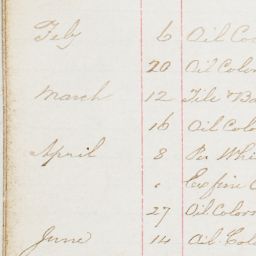 Feby 6 Oil Co
20 Oil Color
March 12 Tile & Ba
16 Oil Colo
April 8 Pu Whi
" 
27 Oil Colors
June 14 Oil Colo